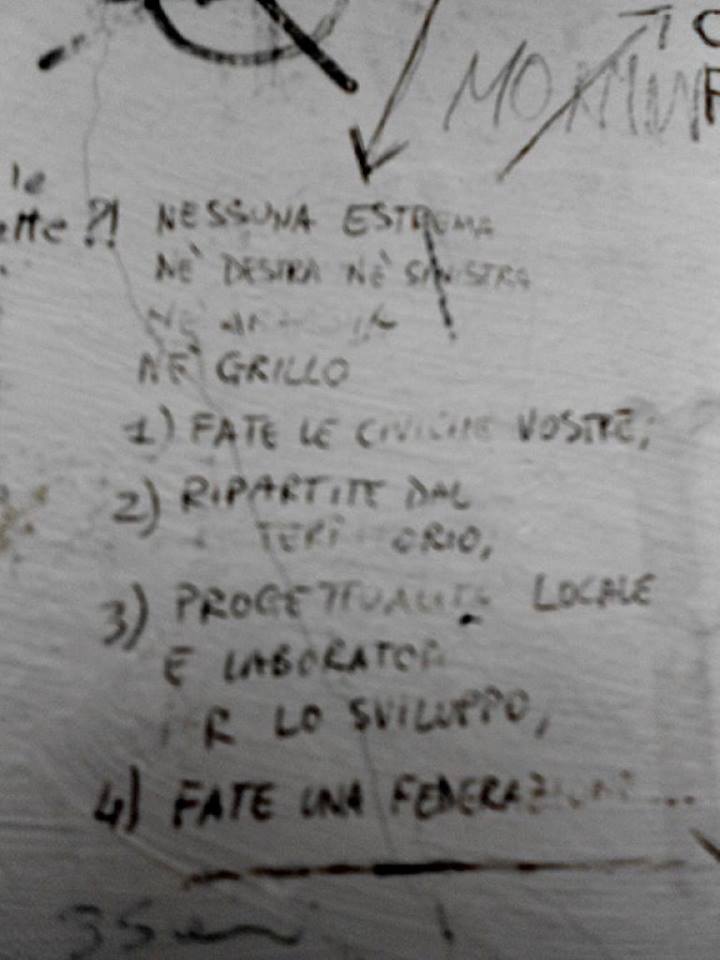 le
?! NESSUNA ESTREMA
NE' DESTRA NE' SINISTRA
NE'
NE' GRILLO
1) FATE LE CIVICHE VOSTRE;
2) RIPARTITE DAL
TERRITORIO,
3) PROGETTUALITÀ LOCALE
E LABORATORI
PER LO SVILUPPO,
4) FATE UNA FEDERAZIONE...